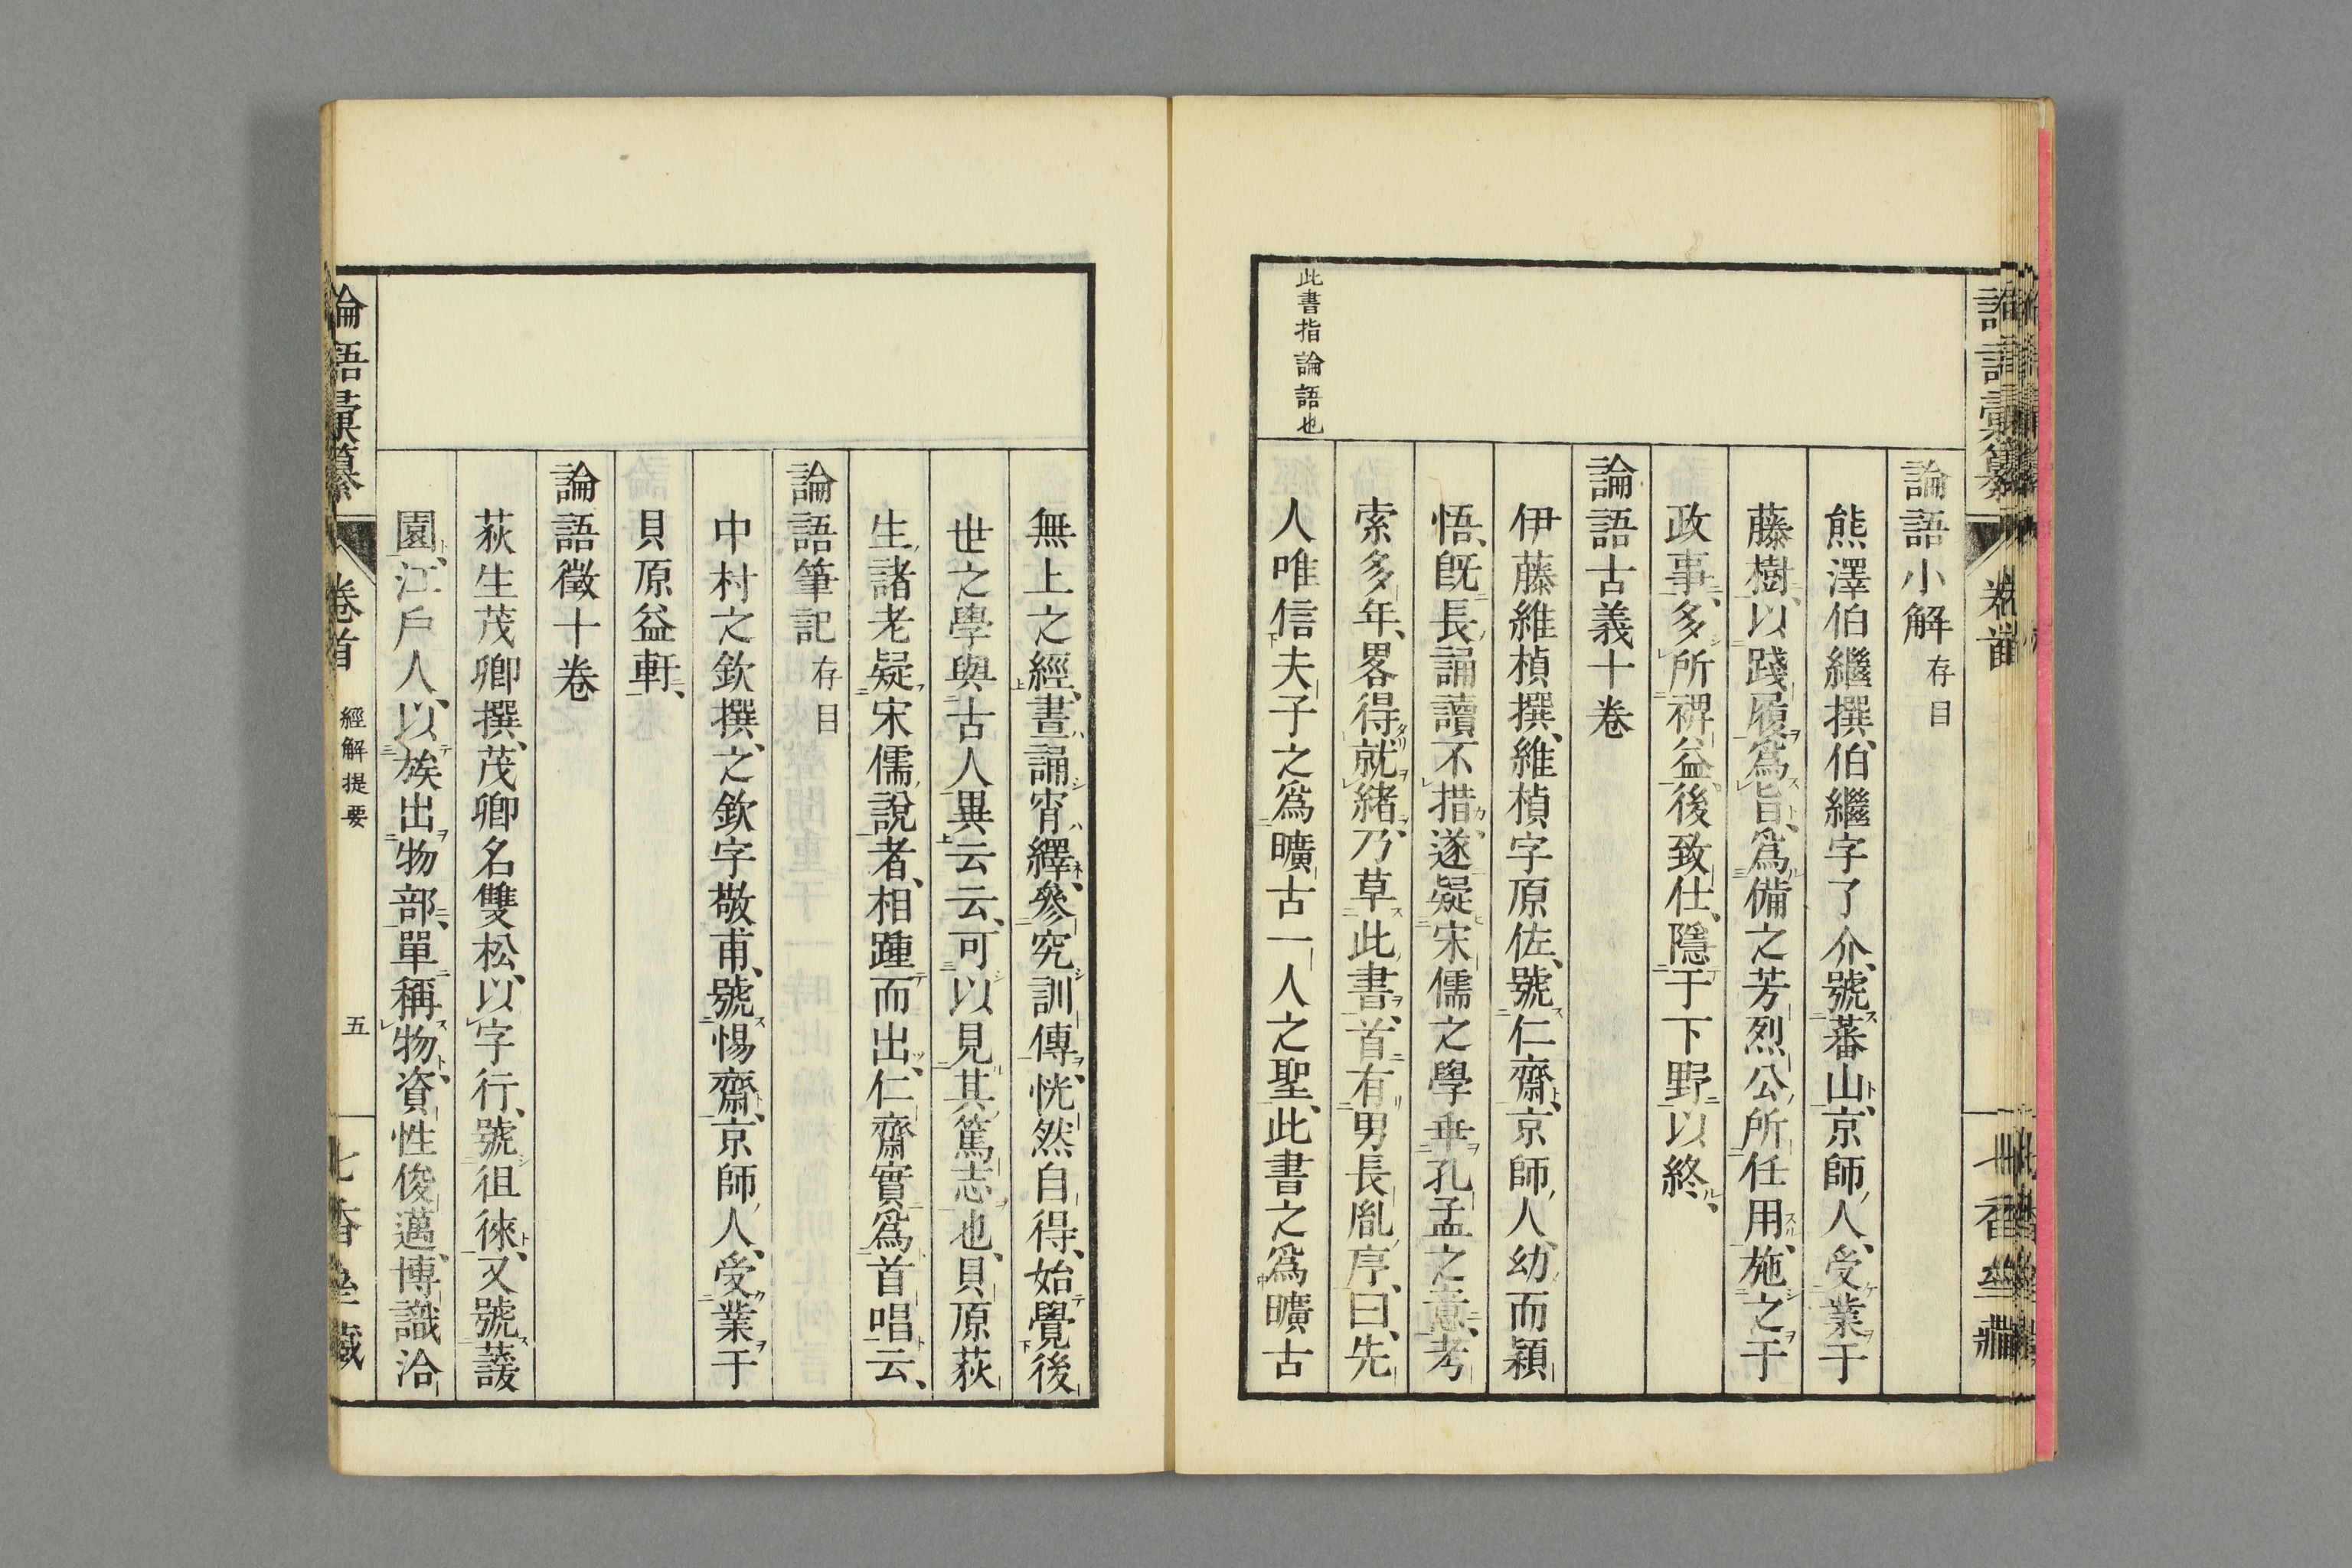 論語小解 存目
熊澤伯繼撰、伯繼字了介、號蕃山、京師人、受業于
藤樹、以踐履爲旨、爲備之芳烈公所任用、施之于
政事、多所裨益、後致仕、隱于下野以終、
論語古義十卷
伊藤維楨撰、維楨字原佐、號仁齋、京師人、幼而穎
悟、既長誦讀不措、遂疑宋儒之學乖孔孟之意、考
索多年、畧得就緒、乃草此書、首有男長胤序、曰、先
人唯信夫子之爲曠古一人之聖、此書之爲曠古
此書指論語也
無上之經、晝誦宵繹、參究訓傳、恍然自得、始覺後
世之學與古人異云云、可以見其篤志也、貝原荻
生諸老疑宋儒説者、相踵而出、仁齋實爲首唱云、
論語筆記 存目
中村之欽撰、之欽字敬甫、號惕齋、京師人、受業于
貝原益軒、
論語徵十卷
荻生茂卿撰、茂卿名雙松、以字行、號徂徠、又號蘐
園、江戶人、以族出物部、單稱物、資性俊邁、博識洽
論語彙纂 卷首 經解提要 五